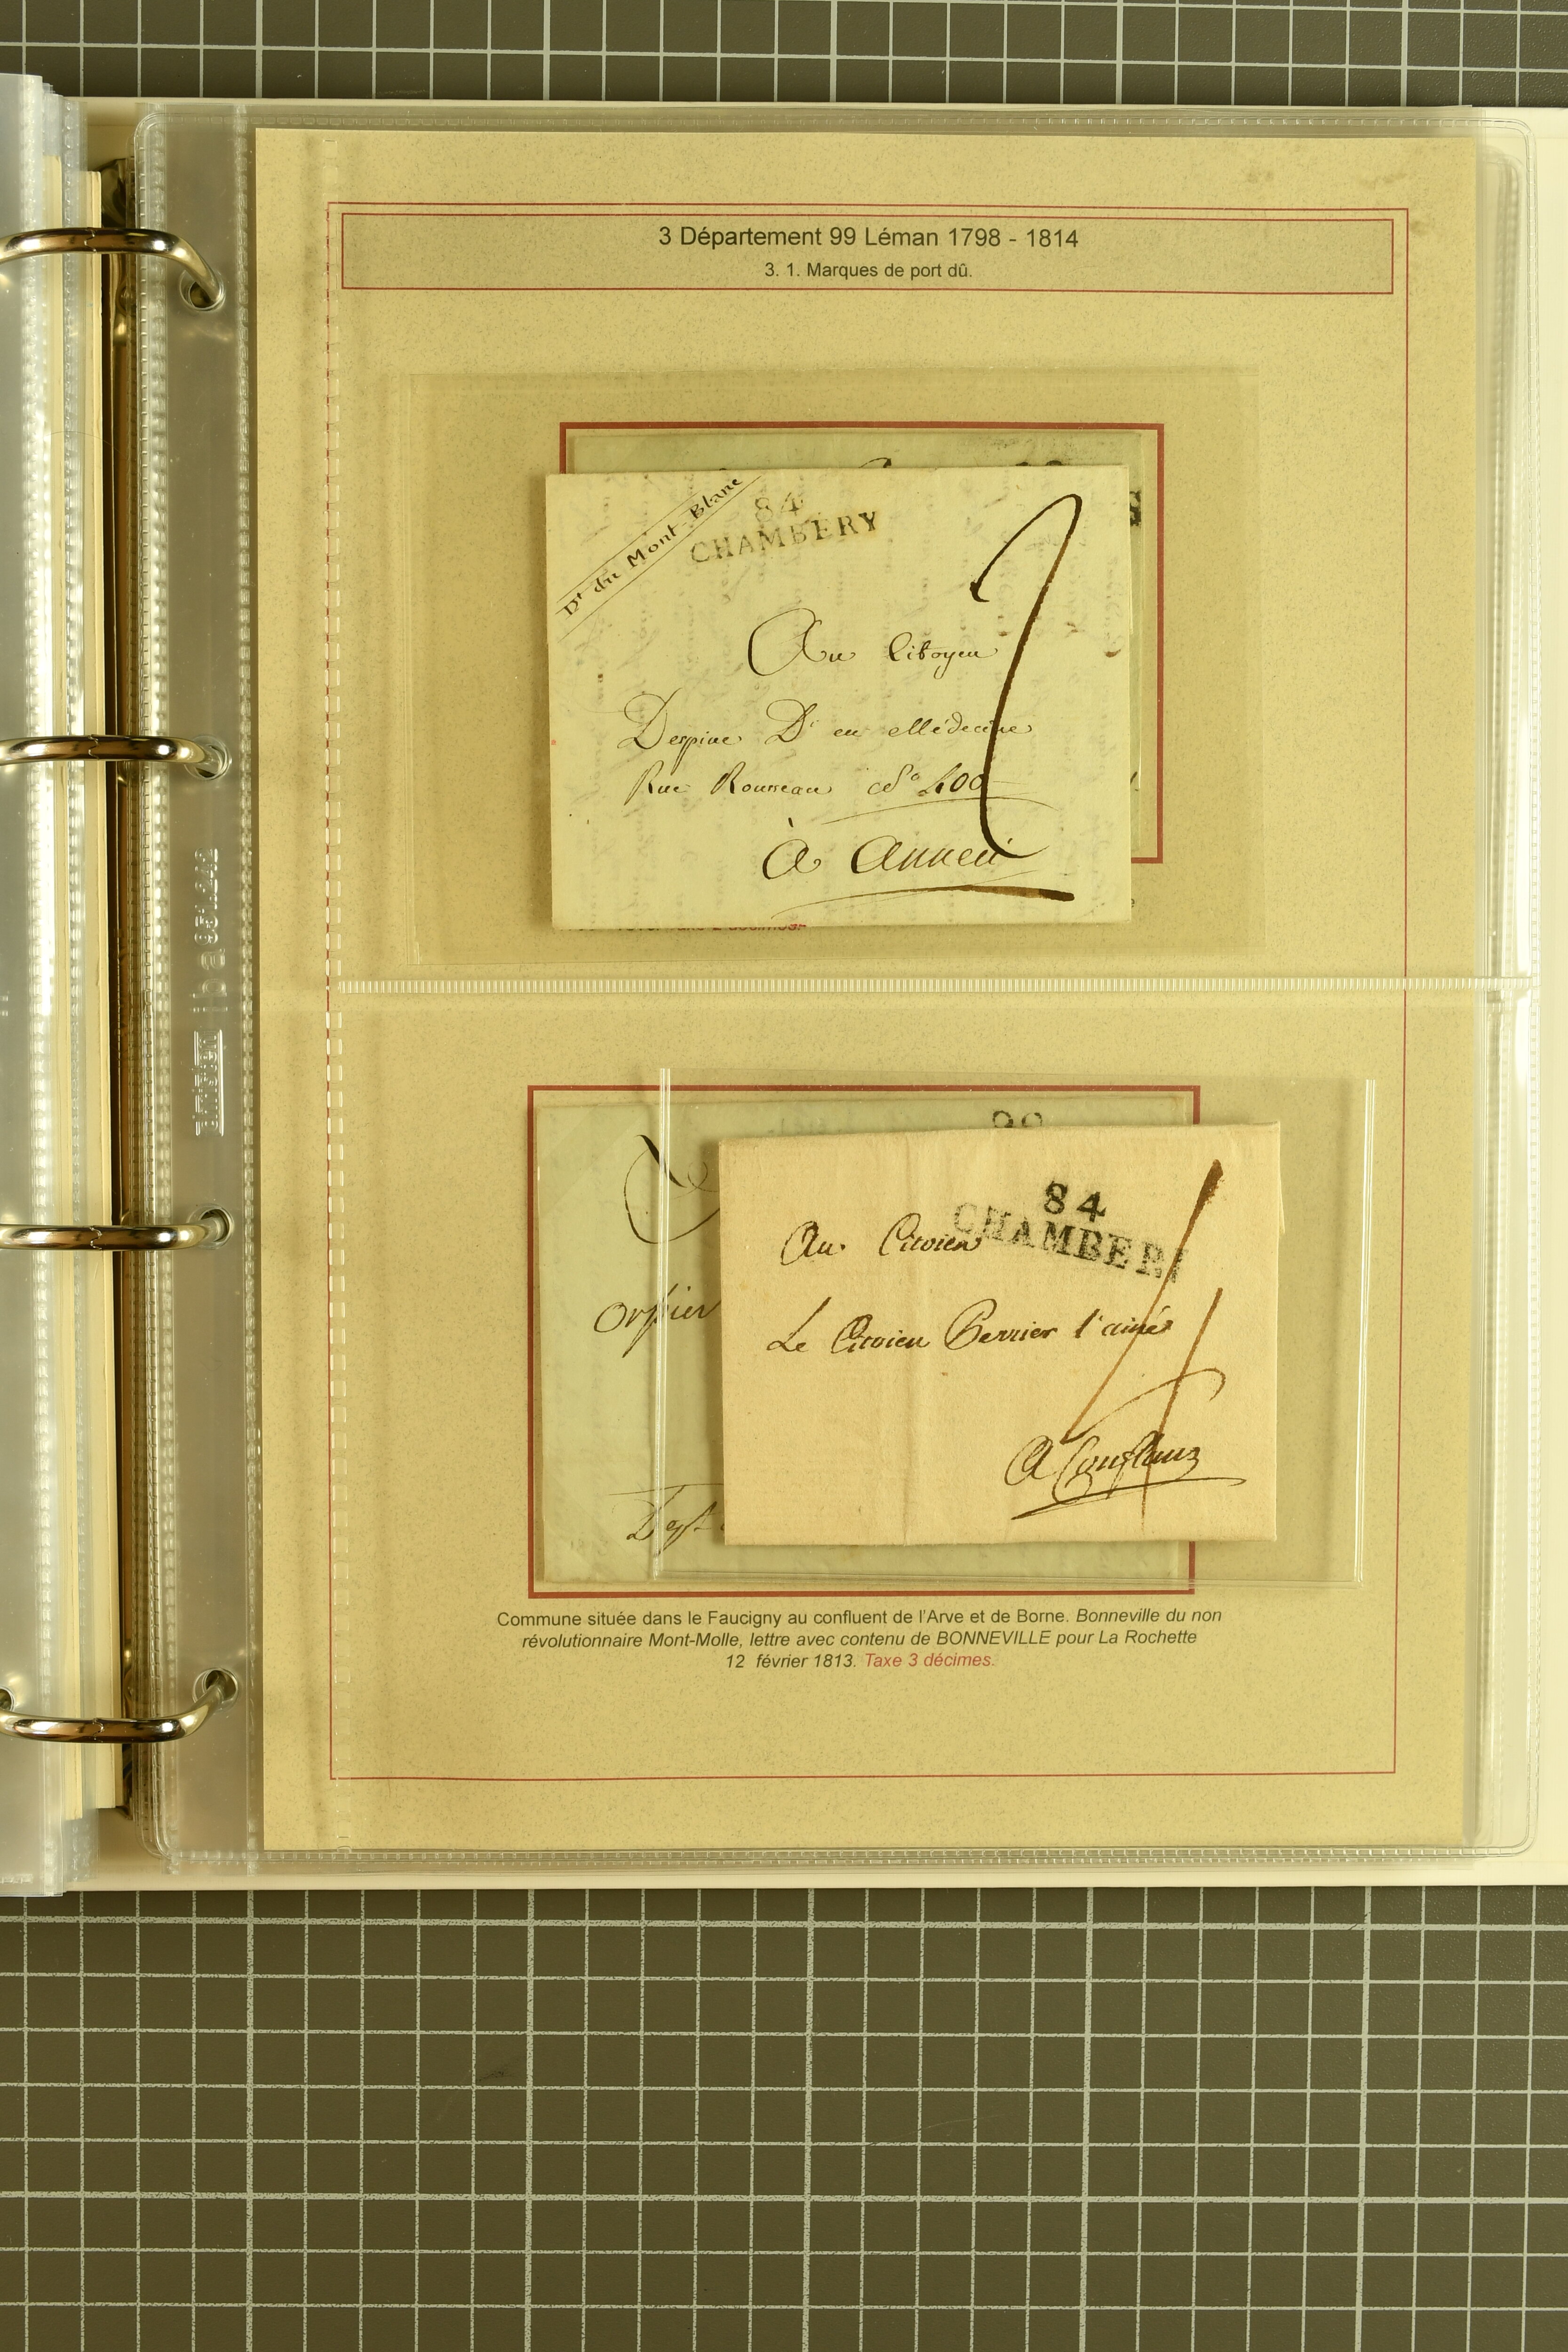 3 Département 99 Léman 1798 - 1814
3. 1. Marques de port dû.
Dt du Mont-Blanc
84
CHAMBERY
2
Au Citoyen
Despine Dr en Médecine
Rue Rousseau No 400
à Anneci
décimes.
99
84
CHAMBERI
Au Citoien
Le Citoien Perrier l'ainé
A Conflans
4
Orphier
Dept
Commune située dans le Faucigny au confluent de l'Arve et de Borne. Bonneville du non
révolutionnaire Mont-Molle, lettre avec contenu de BONNEVILLE pour La Rochette
12 février 1813. Taxe 3 décimes.